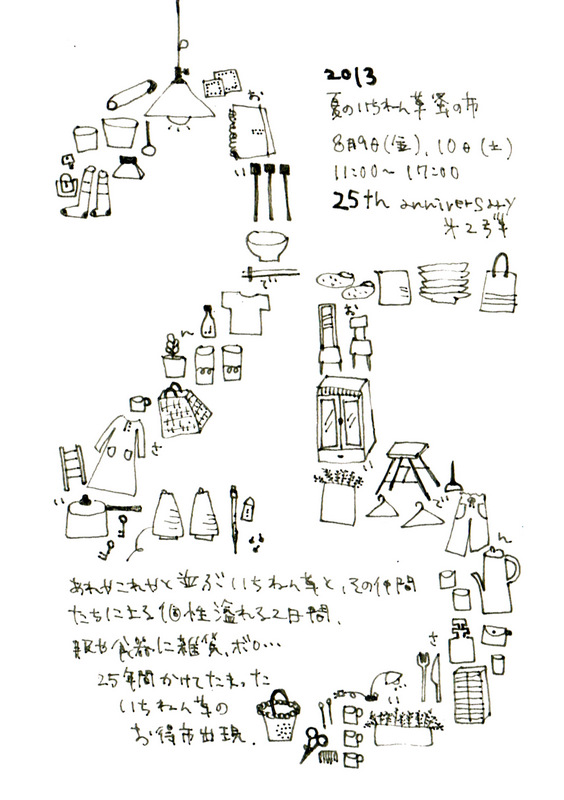 2013
夏のいちねん草蚤の市
8月9日(金)、10日(土)
11:00〜17:00
25th anniversary
第2弾
お
い
で
ん
さ
い
お
い
で
ん
さ
あれやこれやと並ぶいちねん草と、その仲間
たちによる個性溢れる2日間。
服や食器に雑貨、ボロ…
25年間かけてたまった
いちねん草の
お得市出現.